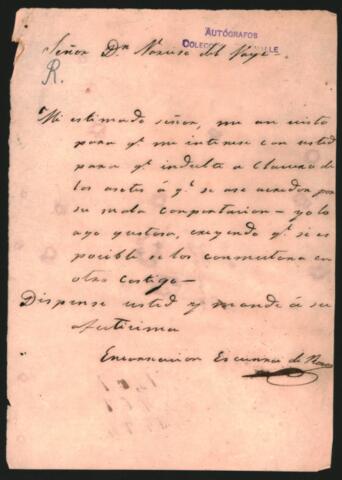 AUTÓGRAFOS
Señor Dn Narciso del
R.
Mi estimado señor, me an visto
para qe me interese con usted
para qe indulte a Clauza de
los asotes á qe se ase acredor por
su mala comportacion – yo lo
ago gustosa, creyendo qe si es
pocible se los conmutara en
otro castigo –
Dispense usted y mande á su
afectícima
Encarnacion Escurra de Rosas